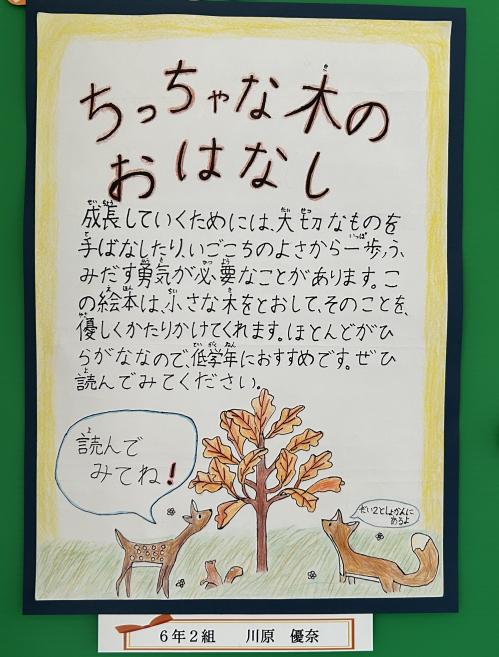 ちっちゃな木の
おはなし
成長していくためには、大切なものを
手ばなしたり、いごこちのよさから一歩、ふ
みだす勇気が必要なことがあります。こ
の絵本は、小さな木をとおして、そのことを、
優しくかたりかけてくれます。ほとんどがひ
らがななので、低学年におすすめです。ぜひ
読んでみてください。
読んで
みてね!
だい2としょかんに
あるよ
6年2組 川原 優奈